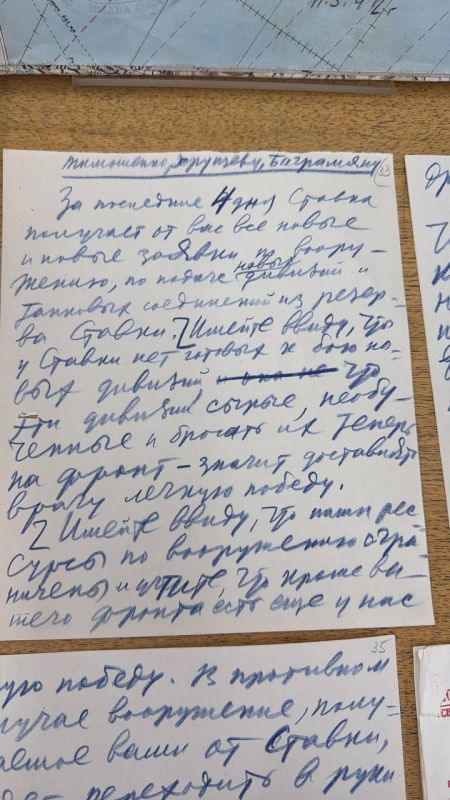 11.5.42г
Тимошенко, Хрущеву, Баграмяну
33
За последние 4 дня Ставка
получает от вас все новые
и новые заявки по воору-
жению, по подаче новых дивизий и
танковых соединений из резер-
ва Ставки. Имейте ввиду, что
у Ставки нет готовых к бою но-
вых дивизий, что
эти дивизии сырые, необу-
ченные и бросать их теперь
на фронт – значит доставлять
врагу легкую победу.
Имейте ввиду, что наши рес-
сурсы по вооружению огра-
ничены и учтите, что кроме ва-
шего фронта есть еще у нас
35
ную победу. В противном
случае вооружение, полу-
чаемое вами от Ставки,
переходить в руки